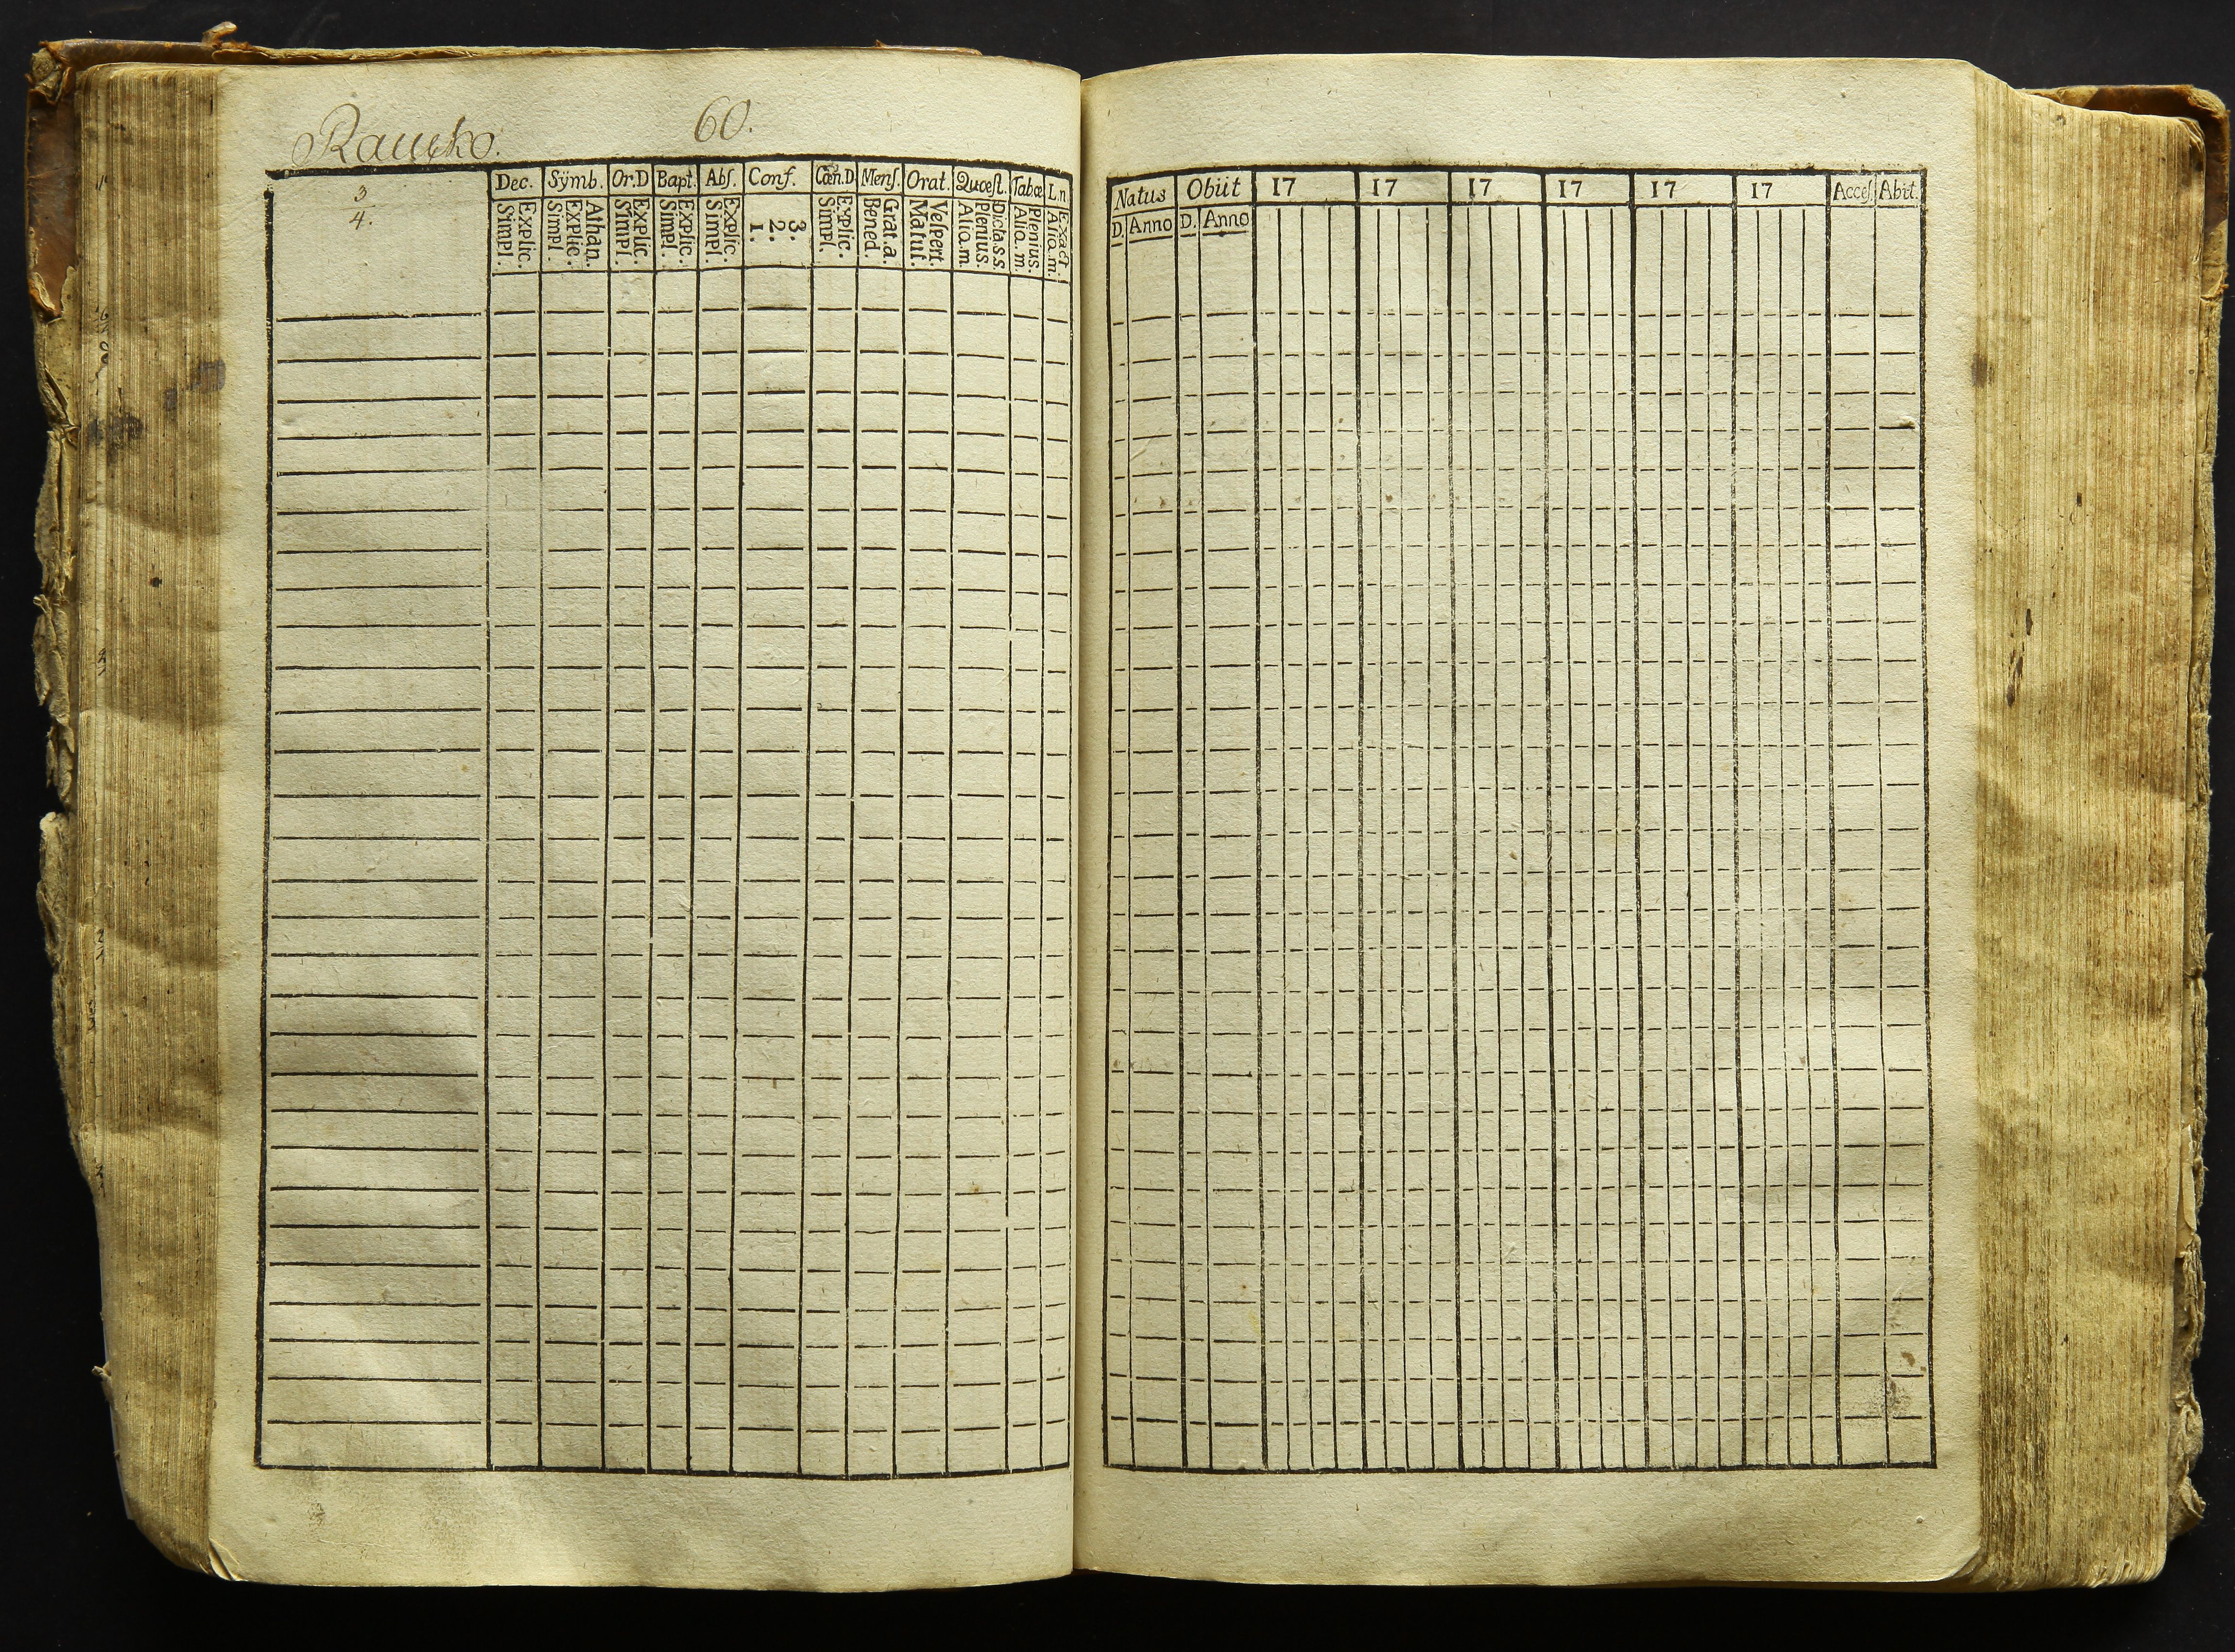 60.
3
4.
Dec. Sÿmb. Or.D Bapt. Abſ. Conf. Cœn.D Menſ. Orat. Quœſt. Tabœ L.n.
Simpl. Explic. Simpl. Explic. Athan. Simpl. Explic. Simpl. Explic. Simpl. Explic. 1. 2. 3. Simpl. Explic. Bened. Grat.a. Matut. Veſpert. Alio.m. Plenius. Dicta.s.s. Alio.m. Plenius. Alio.m. Exact
Natus Obiit 17 17 17 17 17 17 Acceſ. Abit.
D. Anno D. Anno